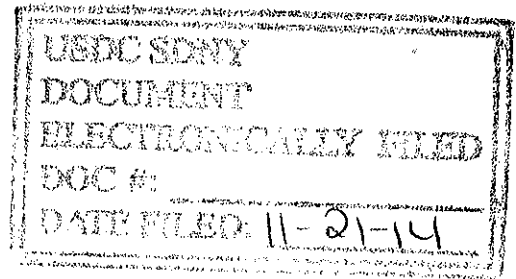 USDC SDNY
DOCUMENT
ELECTRONICALLY FILED
DOC #:
DATE FILED: 11-21-14